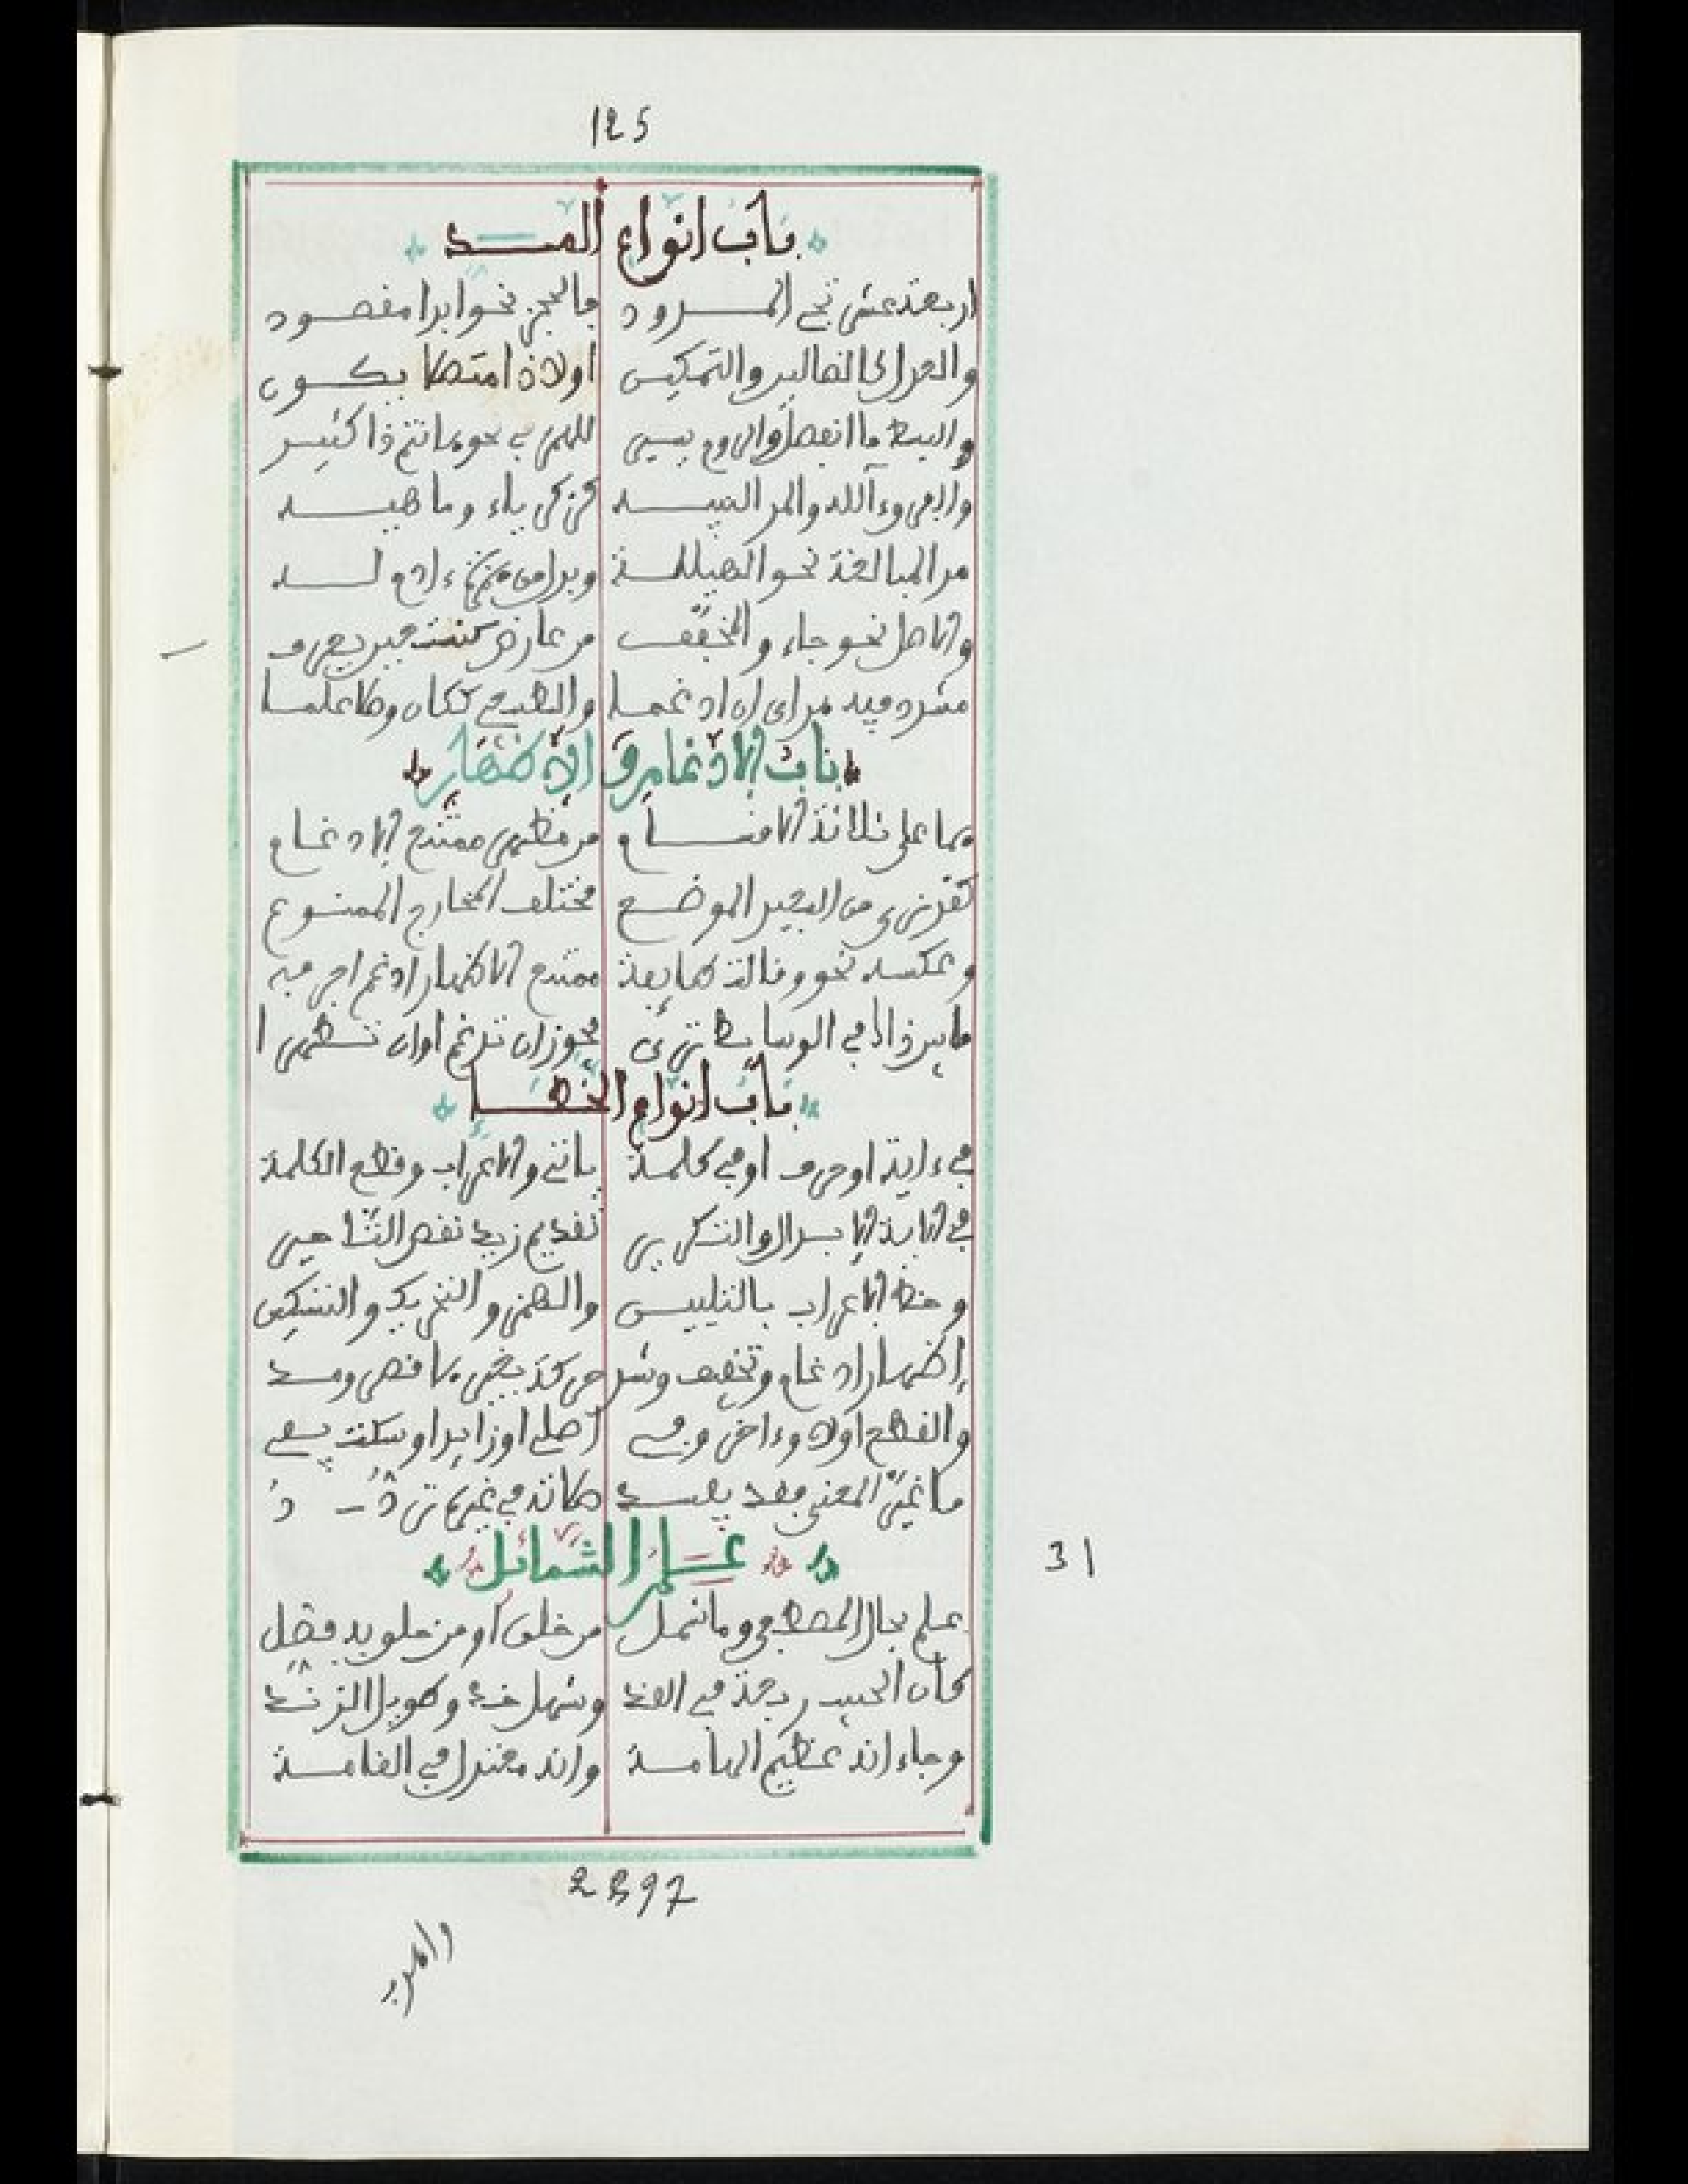 125
باب انواع المد
اربعة عشر تجي المدود فالحجز نحو ابدا مقصود
والعدل كالضالين والتمكين اولاذ امتطا يكون
والبسط ما انفصل والروم يبين للهمز في نحو هانتم ذا كثير
والفرق ءآلله والمد البنيه كزكرياء وما هيه
مد المبالغة نحو الهيللة وبدل من همزة ءادم له
والاصل نحو جاء والمخفف من عارض كنستعين يعرف
مشدد فيه مد اي ان ادغما والطبيعي ككان وطا علما
باب الادغام والاظهار
هما على ثلاثة الاقسام من مظهر ممتنع الادغام
البعيد الموضع مختلف المخارج الممنوع
وعكسه نحو وقالت طايفة ممتنع الاظهار ادغم اجر فيه
ما بين ذا في الوسايط ترى يجوز ان تدغم او ان تظهرا
باب انواع الخطإ
في ءاية او حرف او في كلمة ياتي والاعراب وقطع الكلمة
في الاية الابدال والتكرير تقديم زيد نقص التاخير
وخطأ الاعراب بالتليين والهمز والتحريك والتسكين
إظهار ادغام وتخفيف وشد حركة بغيرها قصر ومد
والقطع اولا وءاخر وفي اصلي او زايد او سكت يفي
ما غير المعنى فقد يفسد صلاته في غيرها تردد
علم الشمائل
علم بحال المصطفى وما شمل من خلق او من خلو به فضل
كان الحبيب ربعة في القد وسهل خد وطويل الزند
وجاء انه عظيم الهامة وانه معتدل في القامة
31
2397